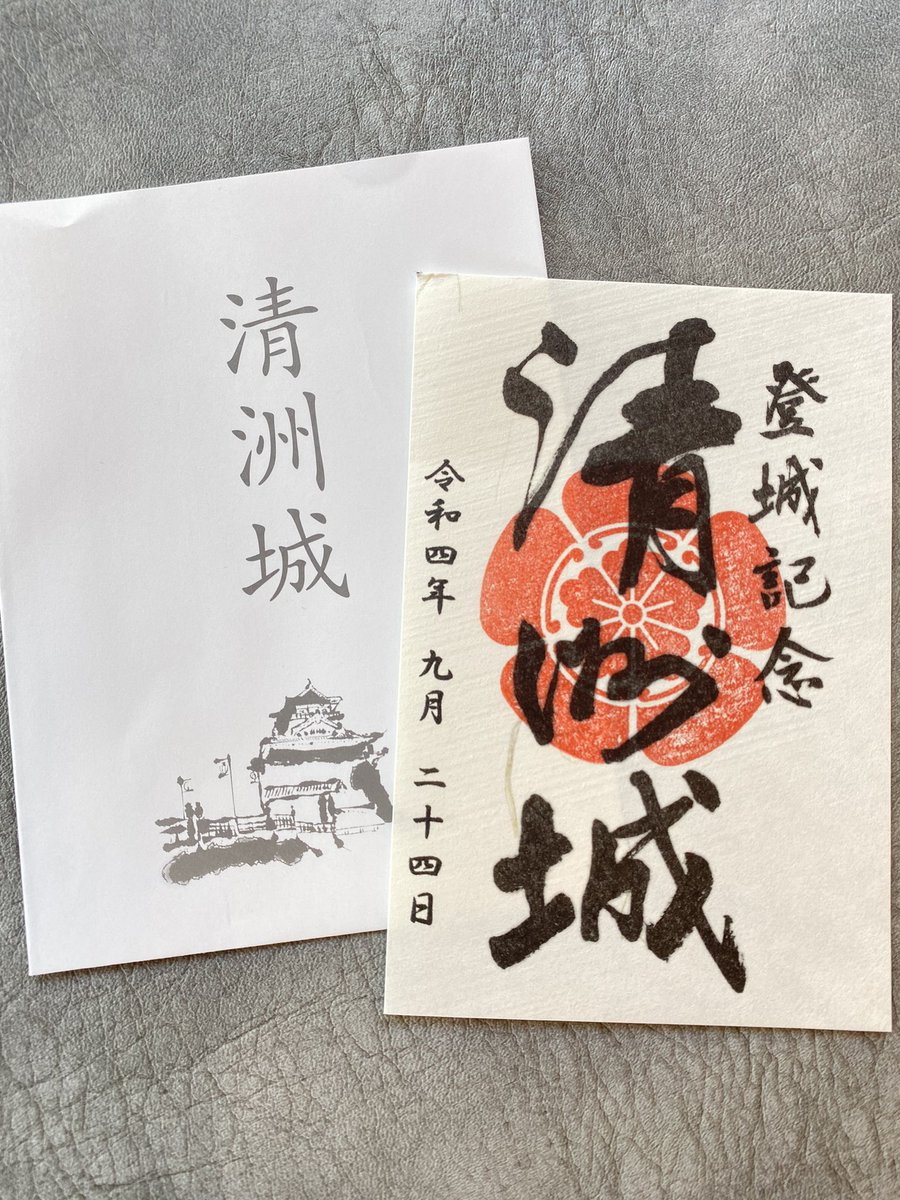 清洲城
登城記念
清洲城
令和四年 九月 二十四日